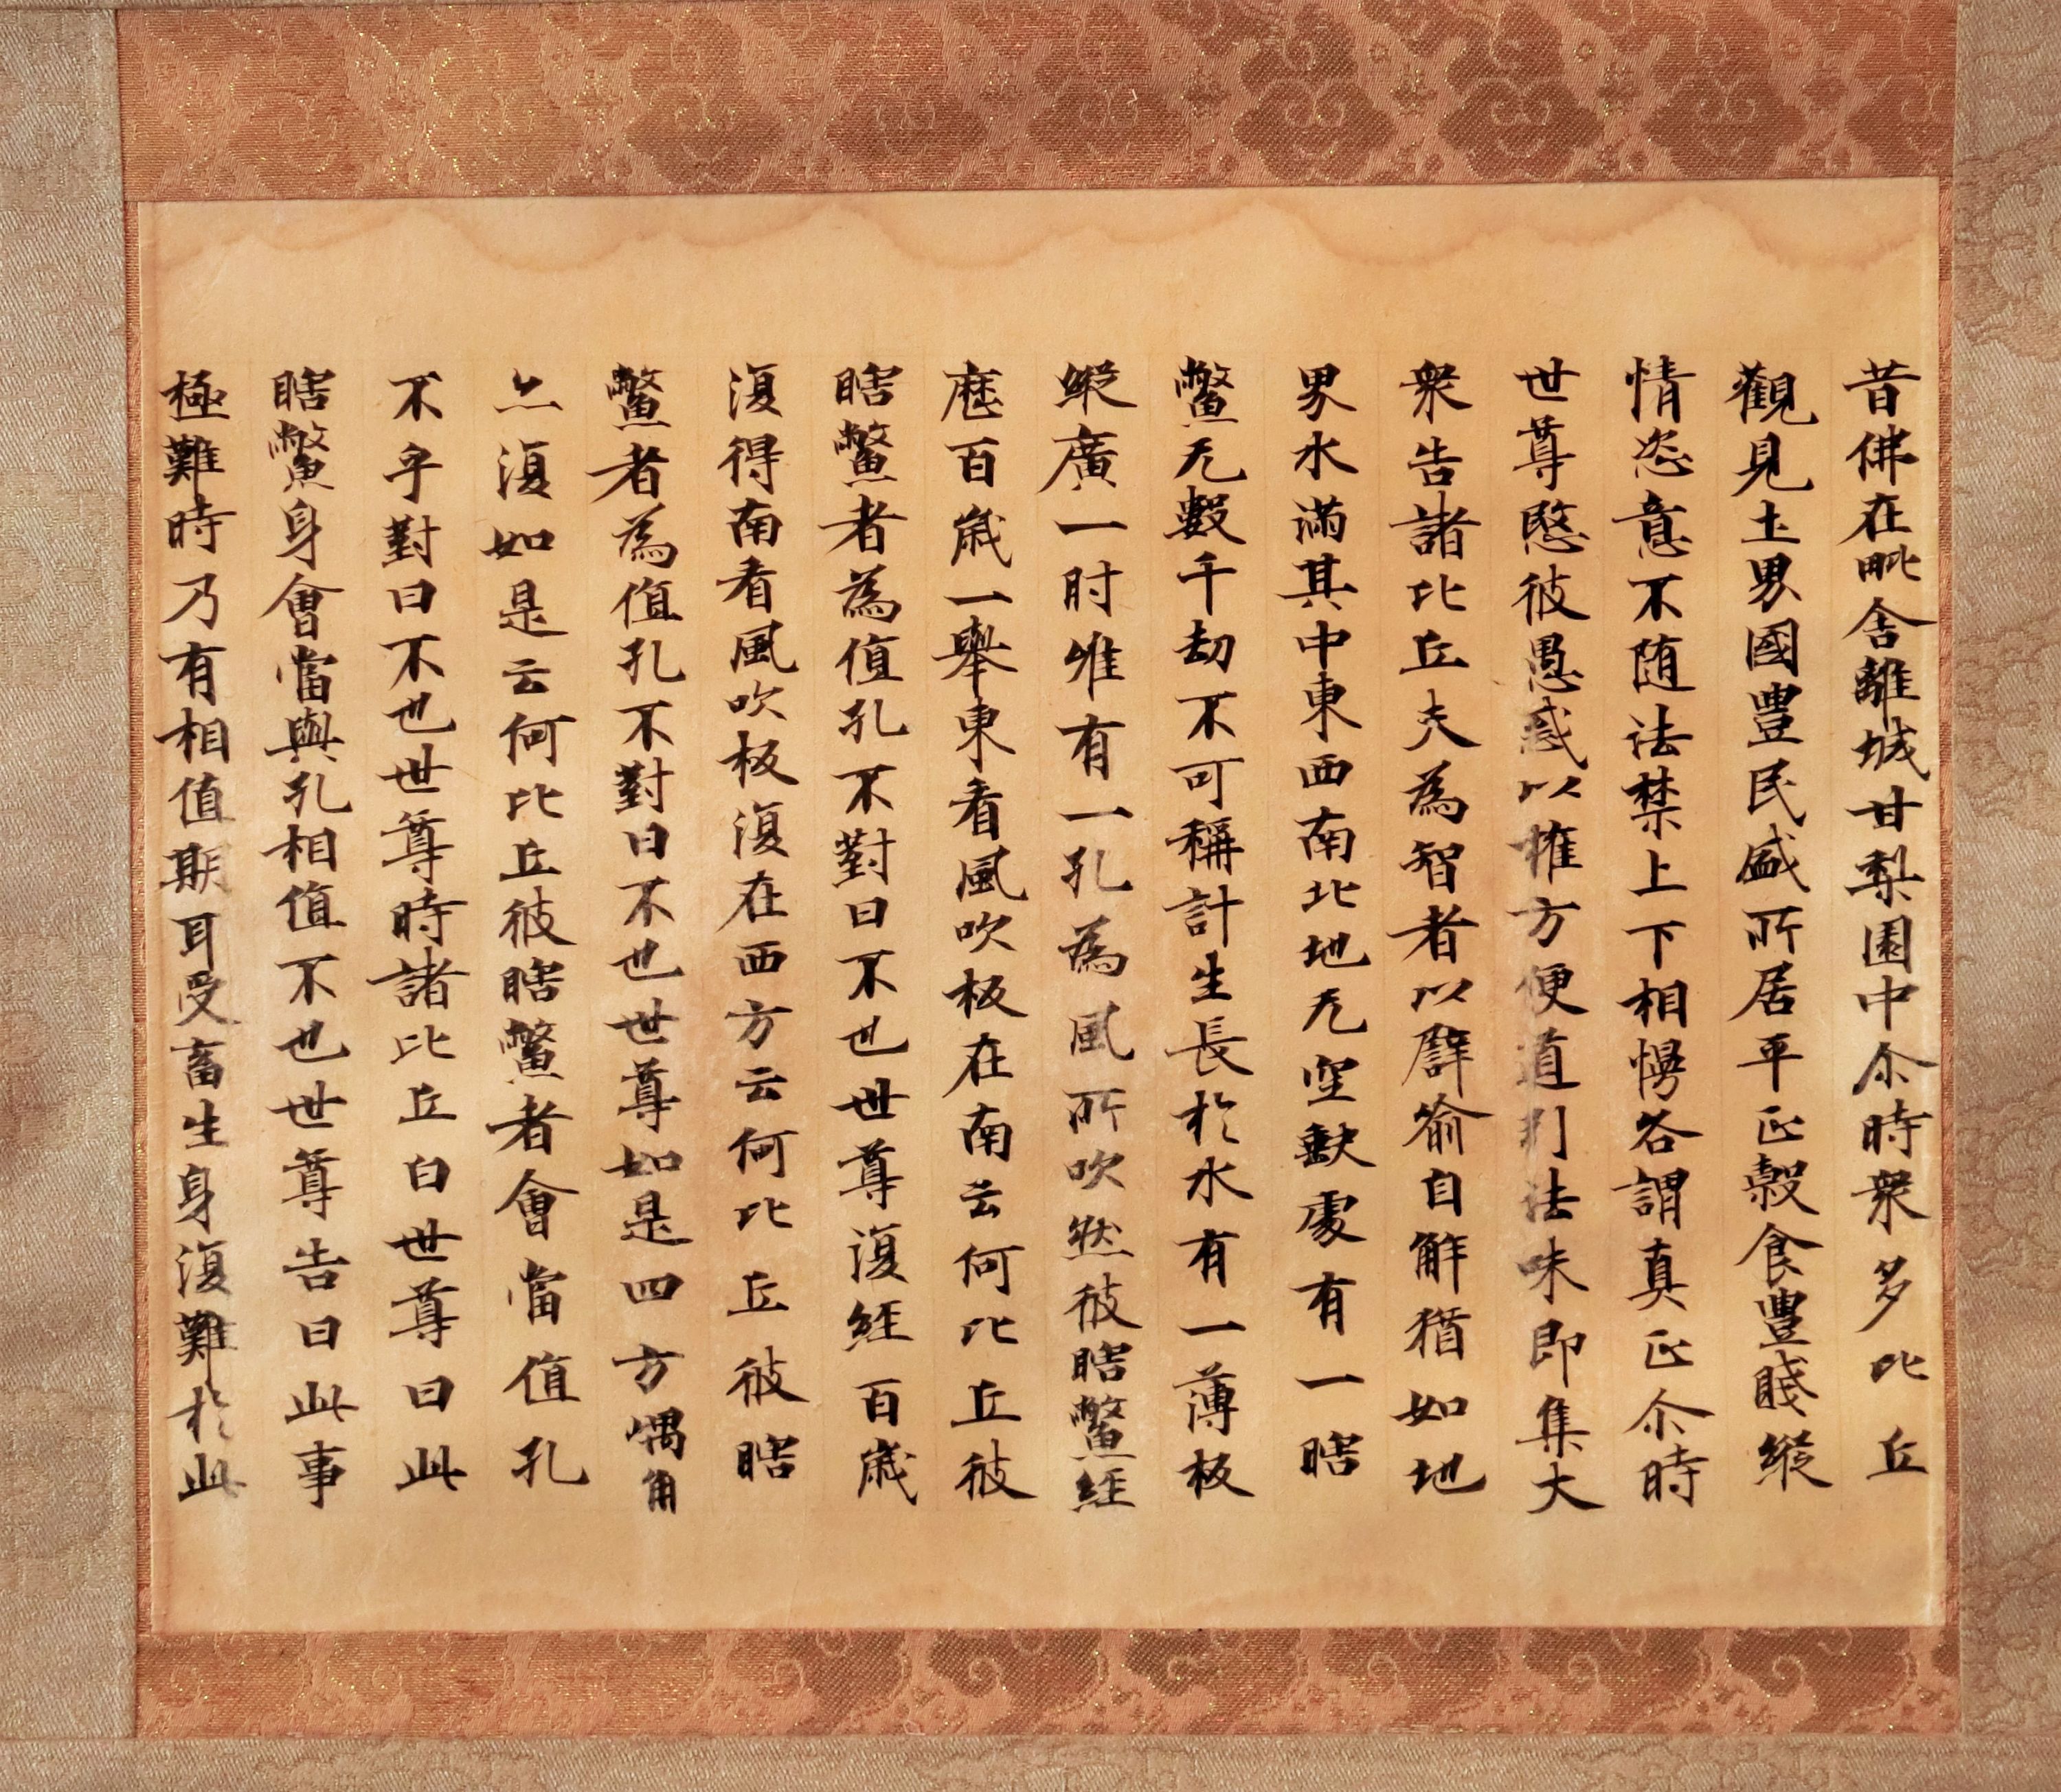 昔佛在毗舎離城甘梨園中尒時衆多比丘
觀見土界國豊民盛所居平正穀食豊賤縦
情恣意不随法禁上下相慢各謂真正尒時
世尊愍彼愚惑以権方便道利法味即集大
衆告諸比丘夫為智者以譬喻自解猶如地
界水滿其中東西南北地无空缺處有一瞎
鼈无數千劫不可稱計生長於水有一薄板
縦廣一肘唯有一孔為風所吹然彼瞎鼈経
歴百歳一舉東看風吹板在南云何比丘彼
瞎鼈者為值孔不對曰不也世尊復経百歳
復得南看風吹板復在西方云何比丘彼瞎
鼈者為值孔不對曰不也世尊如是四方隅角
亦復如是云何比丘彼瞎鼈者會當值孔
不乎對曰不也世尊時諸比丘白世尊曰此
瞎鼈身會當與孔相值不也世尊告曰此事
極難時乃有相值期耳受畜生身復難於此